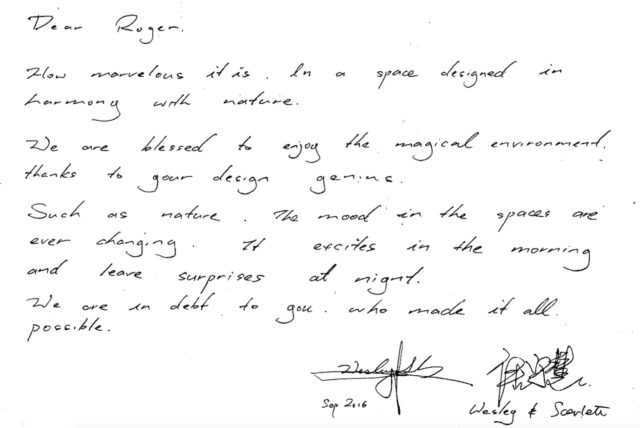 Dear Roger.
How marvelous it is. In a space designed in
harmony with nature.
We are blessed to enjoy the magical environment.
thanks to your design genius.
Such as nature. The mood in the spaces are
ever changing. It excites in the morning
and leave surprises at night.
We are in debt to you. who made it all.
possible.
Wesley
Sep 2016
Wesley & Scarlett